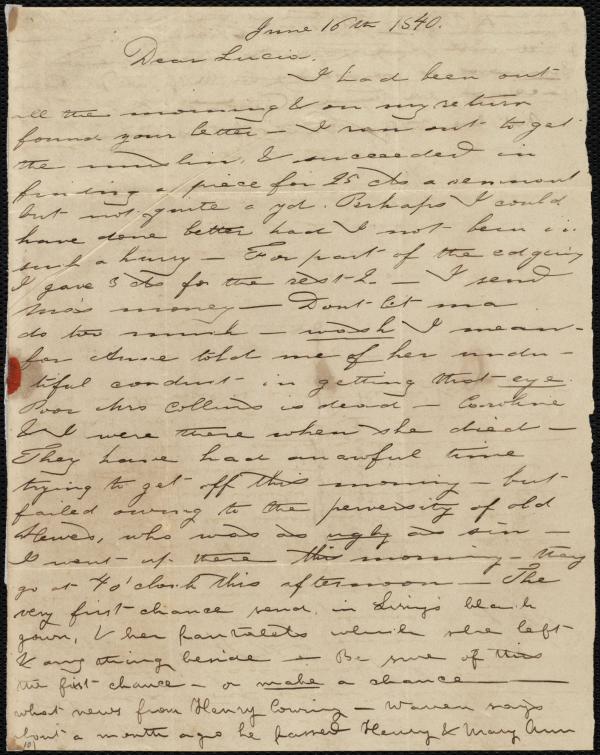 June 16th 1840.
Dear Lucia.
I had been out
all the morning & on my return
found your letter – I ran out to get
the muslin, & succeeded in
finding a piece for 25 cts a remnant
but not quite a yd. Perhaps I could
have done better had I not been in
such a hurry – For part of the edging
I gave 3 cts for the rest 2. – I send
money – Dont let ma
do too much – wash I mean –
for Anne told me of her undu-
tiful conduct in getting that eye.
Poor Mrs Collins is dead – Caroline
& I were there when she died –
They have had an awful time
trying to get off this morning – but
failed owing to the perversity of old
Hewes, who was as ugly as sin –
I went up there this morning – they
go at 4 o'clock this afternoon – The
very first chance send in black
gown, & her pantalets which she left
& any thing beside – Be sure of this
the first chance – or make a chance –
what news from Henry – Warren says
about a month ago he passed Henry & Mary Ann